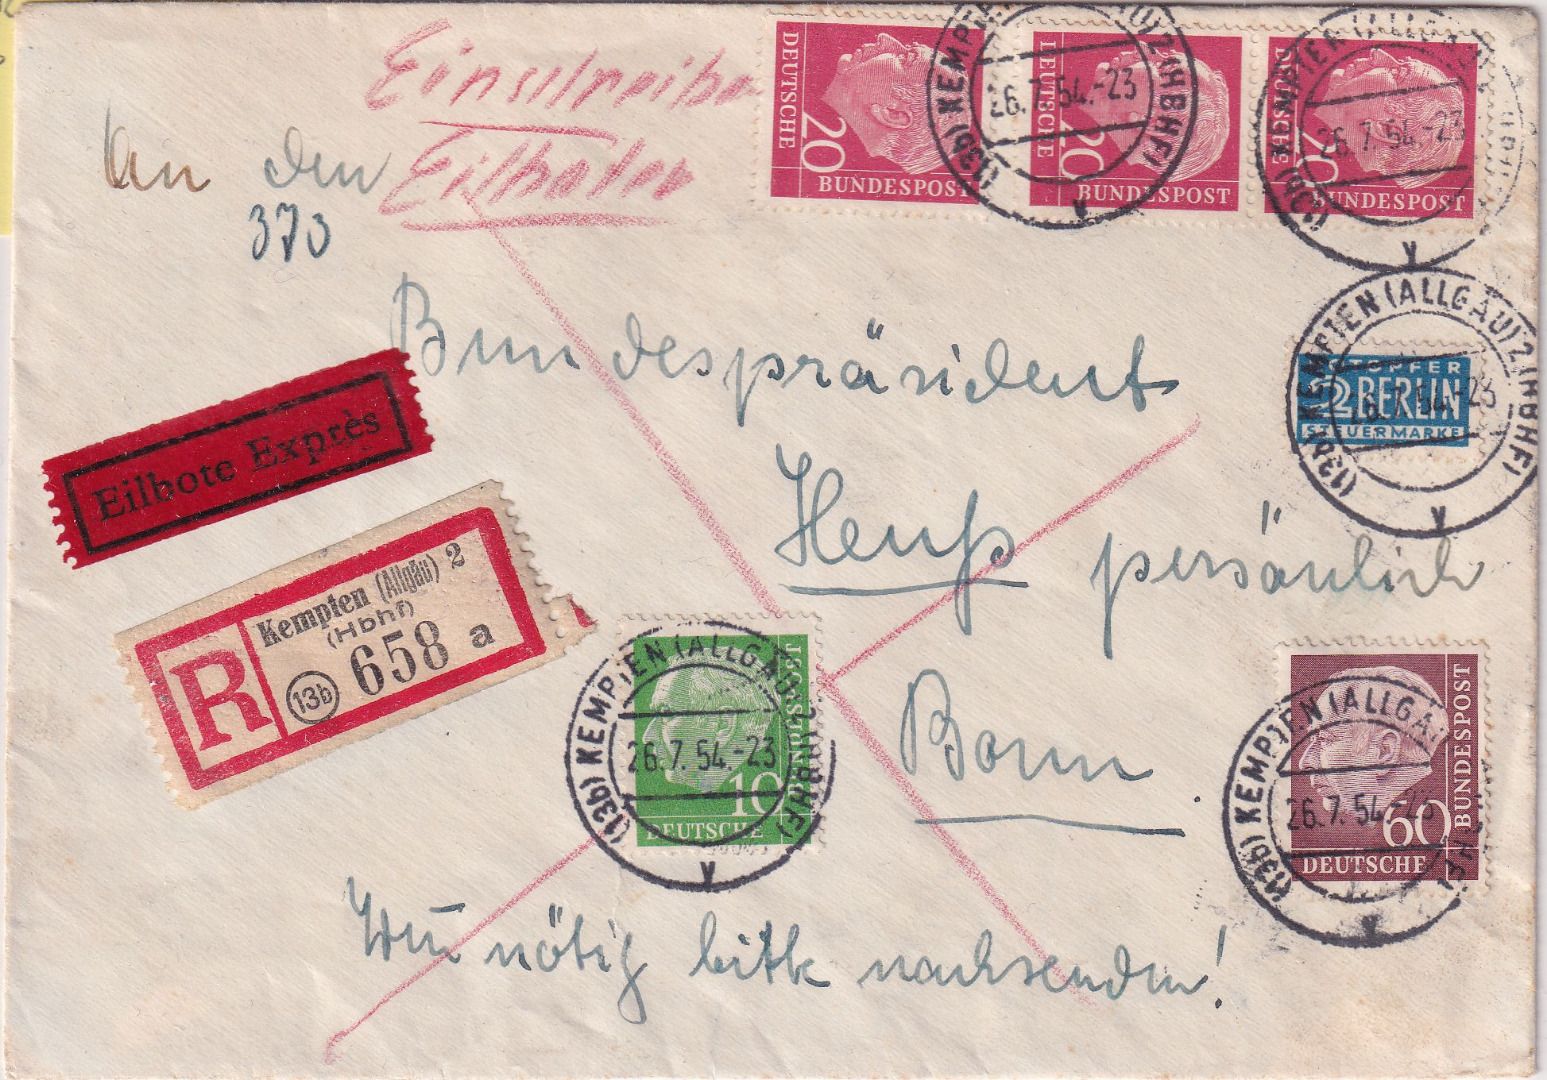 Einschreiben
Eilboten
An den
373
Bundespräsident
Heuß persönlich
Bonn
Wenn nötig bitte nachsenden!
Eilbote Exprès
R
Kempten (Allgäu) 2
(Hbhf)
(13b) 658 a
DEUTSCHE
20
BUNDESPOST
DEUTSCHE
20
BUNDESPOST
DEUTSCHE
20
BUNDESPOST
(13b) KEMPTEN (ALLGÄU) 2 (HBHF)
26.7.54.-23
v
(13b) KEMPTEN (ALLGÄU) 2 (HBHF)
26.7.54.-23
v
NOTOPFER
2 BERLIN
STEUERMARKE
(13b) KEMPTEN (ALLGÄU) 2 (HBHF)
26.7.54.-23
v
BUNDESPOST
10
DEUTSCHE
(13b) KEMPTEN (ALLGÄU) 2 (HBHF)
26.7.54.-23
v
BUNDESPOST
60
DEUTSCHE
(13b) KEMPTEN (ALLGÄU) 2 (HBHF)
26.7.54.-23
v